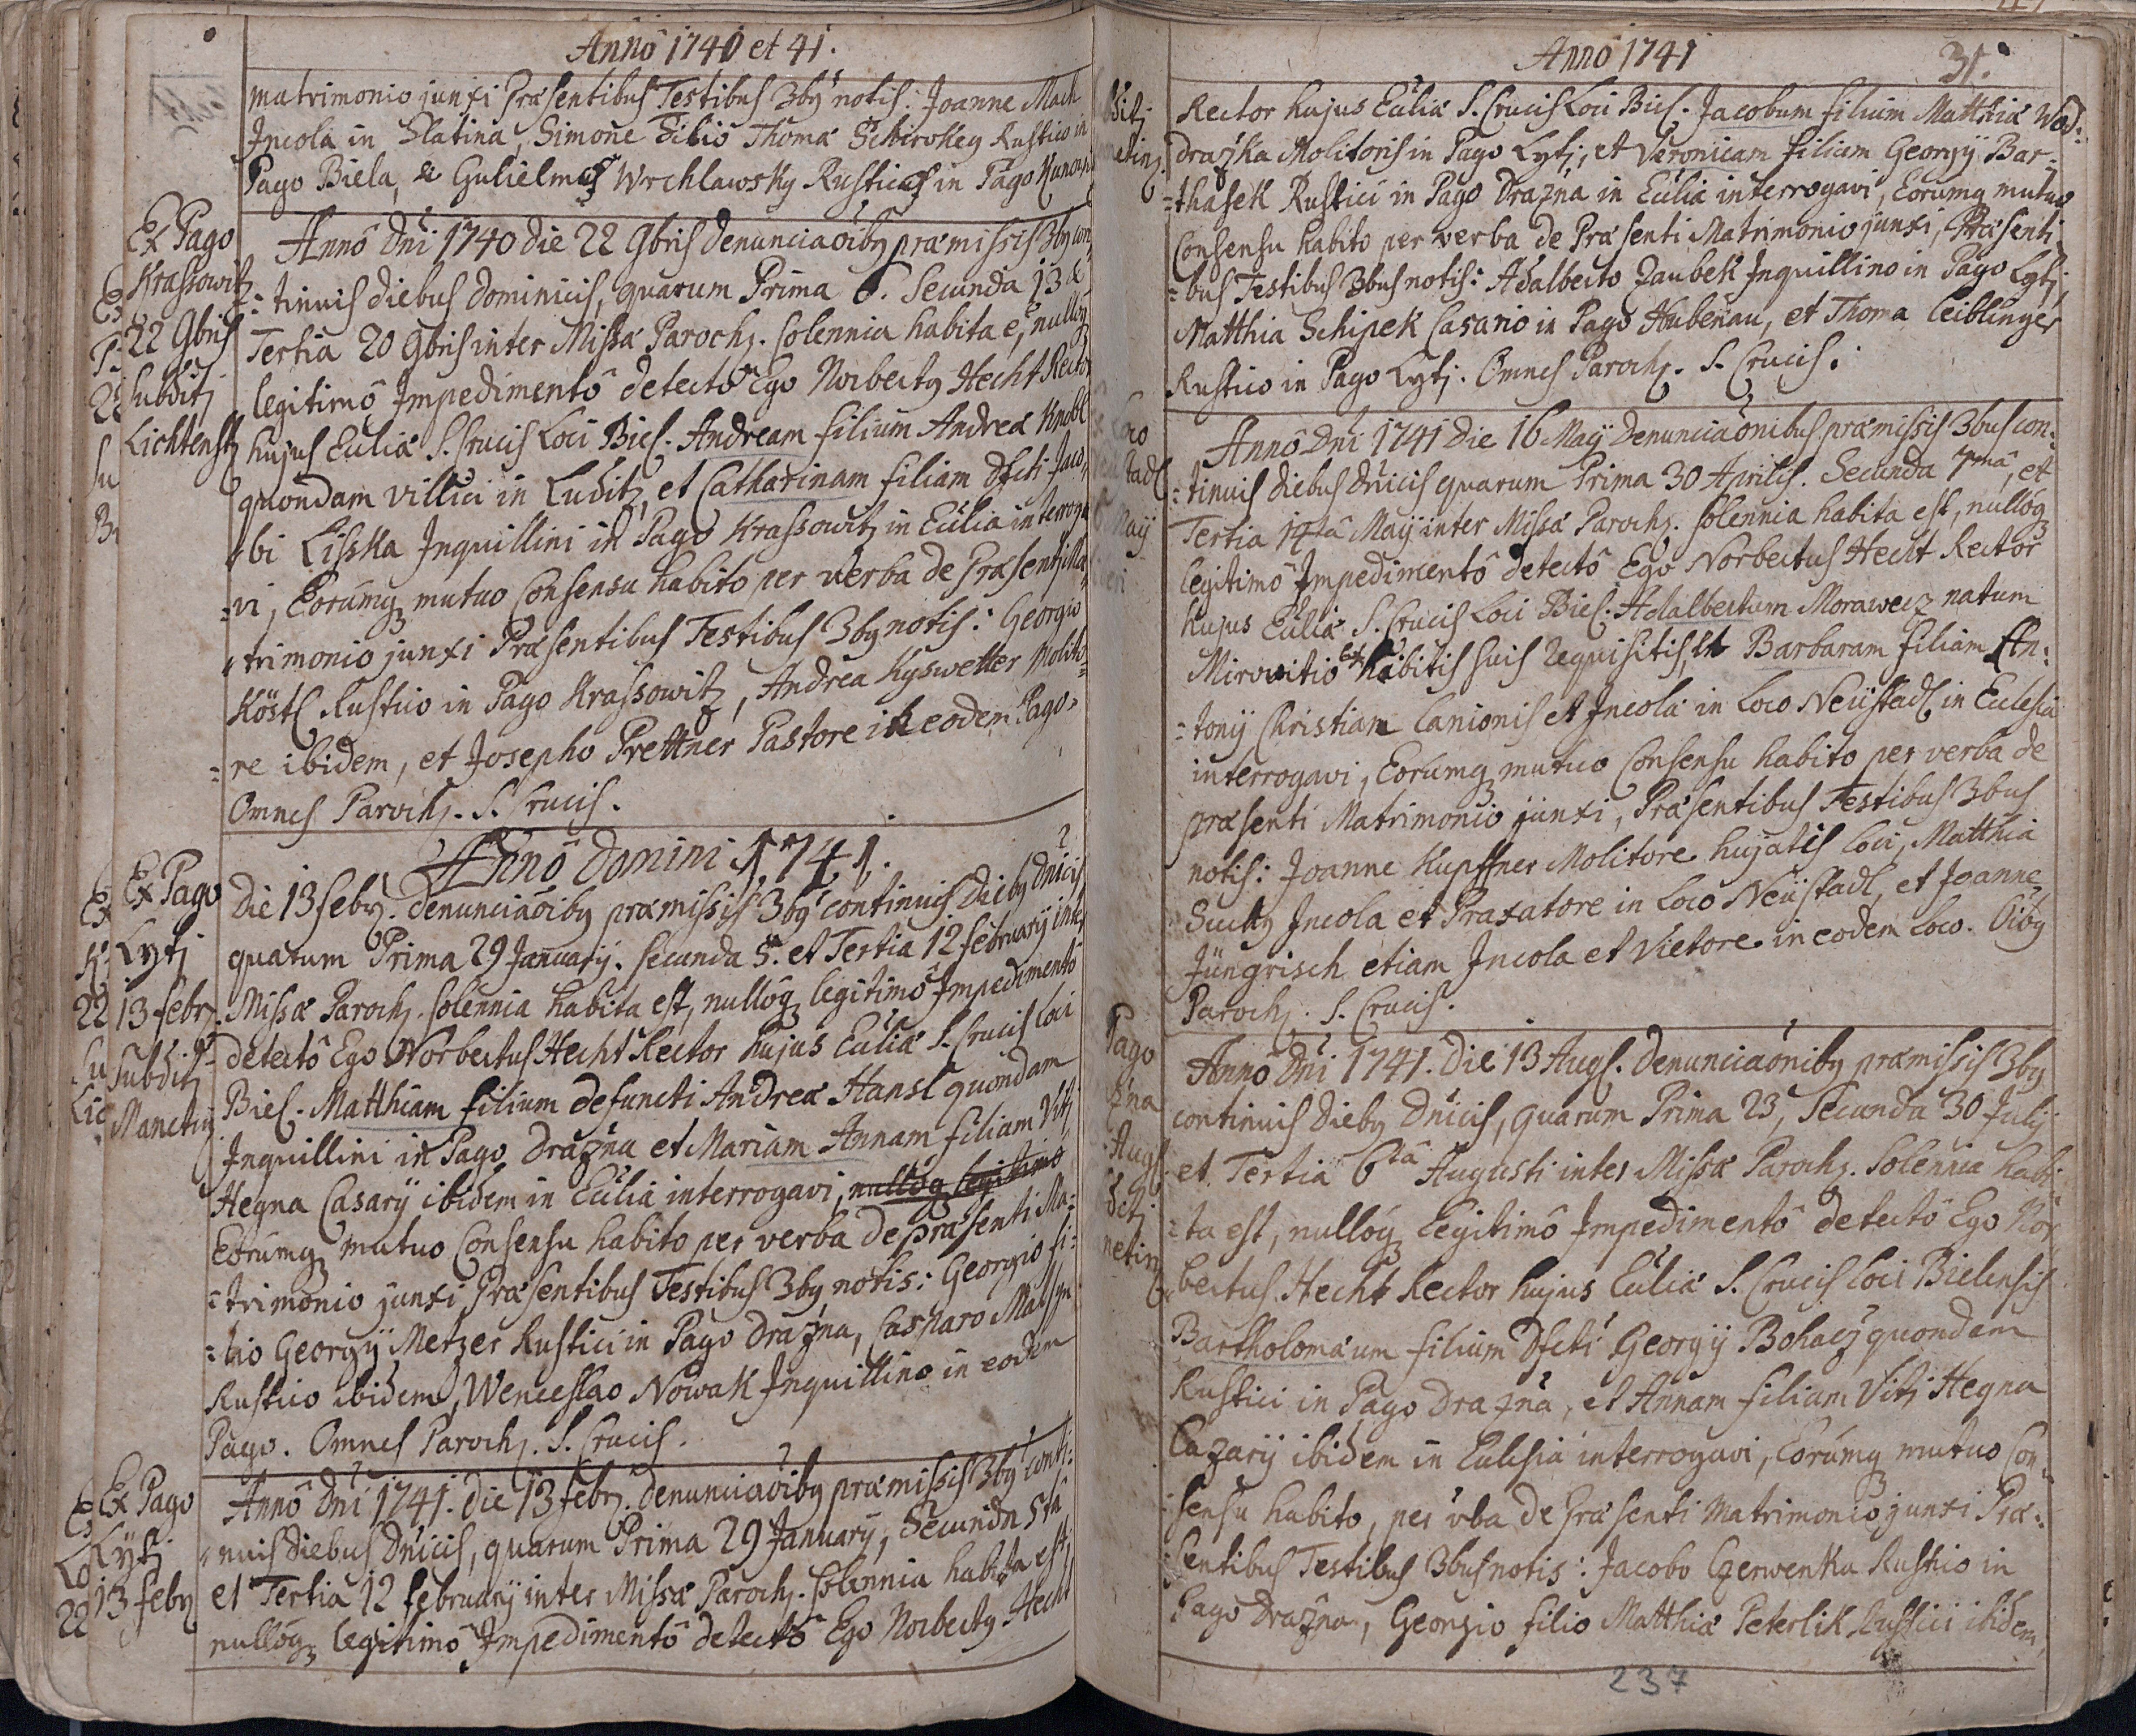 Annô 1740 et 41.
matrimonio junxi Præsentibus Testibus 3bꝰ notis: Joanne Mach
Incola in Slatina, Simone Filio Thomæ Schirokey Rustico in
Pago Biela, & Gulielmo Wrchlawsky Rustico in Pago
Ex Pago
Krassowitz
22 9bris
Subditj
Lichtenst
Annô Dñi 1740 die 22 9bris denunciaõibꝰ præmissis 3bꝰ con-
=tinuis diebus dominicis, quarum Prima 6. Secunda 13 &
Tertia 20 9bris inter Missæ Paroch. Solennia habita e, nullóq
legitimô Impedimentô detectô Ego Norbertꝰ Hecht Rector
hujus Ecc̃liæ S. Crucis Loci Biel. Andream filium Andreæ Knobl
quondam villici in Luditz, et Catharinam filiam Dfcti Jaco-
=bi Lisska Inquillini in Pago Krassowitz in Ecc̃lia interroga
=vi, Eorúmq mutuo Consensu habito per verba de Præsenti Ma-
=trimonio junxi Præsentibus Testibus 3bꝰ notis: Georgio
Köstl Rustico in Pago Krassowitz, Andrea Kyswetter Molito-
=re ibidem, et Josepho Prettner Pastore in eodem Pago.
Omnes Paroch. S. Crucis.
Annô Domini 1741.
Ex Pago
Lytj
13 febr.
Subditj
Manetin
Die 13 febr. denunciaõibꝰ præmissis 3bꝰ continuis diebꝰ Dñicis
quarum Prima 29 January. Secunda 5. et Tertia 12 february inter
Missæ Paroch. Solennia habita est, nullóq legitimô Impedimentô
detectô Ego Norbertus Hecht Rector hujus Ecc̃liæ S. Crucis Loci
Biel. Matthiam filium defuncti Andreæ Hansl quondam
Inquillini in Pago Drazna et Mariam Annam filiam Viti
Hegna Casarÿ ibidem in Ecc̃lia interrogavi, nullóq legitimo
Eorúmq mutuo Consensu habito per verba de Præsenti Ma-
=trimonio junxi Præsentibus Testibus 3bꝰ notis: Georgio fi:
=lio Georgÿ Metzer Rustici in Pago Drazna, Casparo
Rustico ibidem, Wenceslao Nowak Inquillino in eodem
Pago. Omnes Paroch. S. Crucis.
Ex Pago
Lytj
13 febr
Annô Dñi 1741. die 13 febr. denunciaõibꝰ præmissis 3bꝰ conti:
=nuis diebus Dñicis, quarum Prima 29 January, Secunda 5tâ
et Tertia 12 february inter Missæ Paroch. Solennia habita est,
nullóq legitimô Impedimentô detectô Ego Norbertꝰ Hecht
Anno 1741
31.
Rector hujus Ecc̃liæ S. Crucis Loci Biel. Jacobum filium Matthiæ Wod:
Drazka Molitoris in Pago Lytj, et Veronicam filiam Georgÿ Bar-
=thasek Rustici in Pago Drazna in Ecc̃lia interrogavi, Eorumq mutuo
Consensu habito per verba de Præsenti Matrimonio junxi, Præsenti
=bus Testibus 3bus notis: Adalberto Zaubek Inquillino in Pago Lytj,
Matthia Schipek Casario in Pago Hubenau, et Thoma Ceiblinger
Rustico in Pago Lytj. Omnes Paroch. S. Crucis.
Annô Dñi 1741 Die 16 Maÿ Denunciaõnibus præmissis 3bus con:
=tinuis diebus Dñicis quarum Prima 30 Aprilis. Secunda 7mâ, et
Tertia 14tâ Maÿ inter Missæ Paroch. Solennia habita est, nullóq
legitimô Impedimentô detectô Ego Norbertus Hecht Rector
hujus Ecc̃liæ S. Crucis Loci Biel. Adalbertum Morawecz natum
Mirovitio Ex habitis suis Requisitis, et Barbaram filiam An:
=tonÿ Christian Lanionis et Incolæ in Loco Neüstadl in Ecclesia
interrogavi, Eorumq mutuo Consensu habito per verba de
præsenti Matrimonio junxi, Præsentibus Testibus 3bus
notis: Joanne Kupffner Molitore hujatis Loci, Matthia
Suchy Incola et Praxatore in Loco Neüstadl, et Joanne
Jüngrisch etiam Incola et Vietore in eodem Loco. Oĩbꝰ
Paroch. S. Crucis.
Annô Dñi 1741. Die 13 Augs. Denunciaõnibꝰ præmissis 3bꝰ
continuis diebꝰ Dñicis, quarum Prima 23, Secunda 30 Julÿ
et Tertia 6tâ Augusti inter Missæ Paroch. Solennia habi
=ta est, nullóq Legitimô Impedimentô detectô Ego Nor
=bertus Hecht Rector hujus Ecc̃liæ S. Crucis Loci Bielensis
Bartholomæum filium Dfcti Georgÿ Bohacz quondam
Rustici in Pago Drazna, et Annam filiam Viti Hegna
Cazarÿ ibidem in Ecclesia interrogavi, Eorúmq mutuo Con-
sensu habito, per vba de Præsenti Matrimonio junxi Præ:
sentibus Testibus 3bus notis: Jacobo Czerwenka Rustico in
Pago Drazna, Georgio filio Matthiæ Peterlik Rustici ibidem,
237